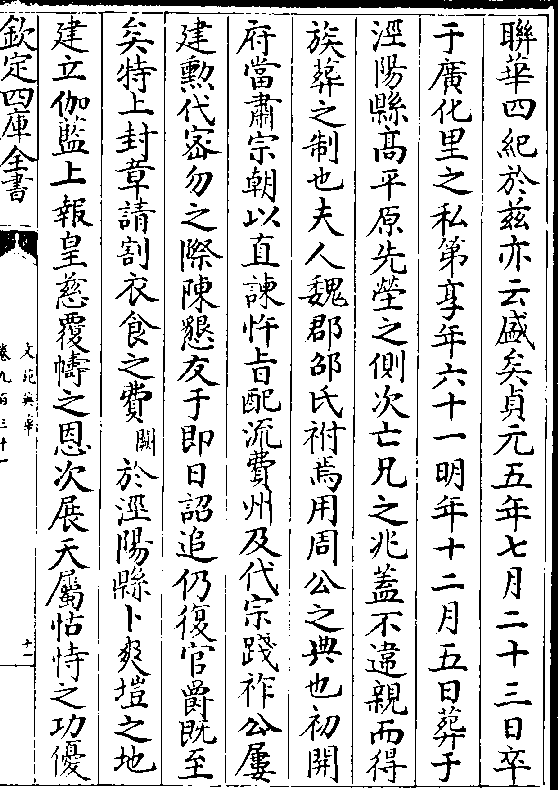 聯華四紀於兹亦云盛矣貞元五年七月二十三日卒
于廣化里之私第享年六十一明年十二月五日葬于
涇陽縣髙平原先塋之側次亡兄之兆蓋不違親而得
族葬之制也夫人魏郡邵氏祔焉用周公之典也初開
府當肅宗朝以直諫忤㫖配流費州及代宗踐祚公屢
建勲代宻勿之際陳懇友于即日詔追仍復官爵既至
矣特上封章請割衣食之費闕於涇陽縣卜爽塏之地
建立伽藍上報皇慈覆幬之恩次展天屬怙恃之功優
欽定四庫全書
文苑英華
卷九百三十一
十一